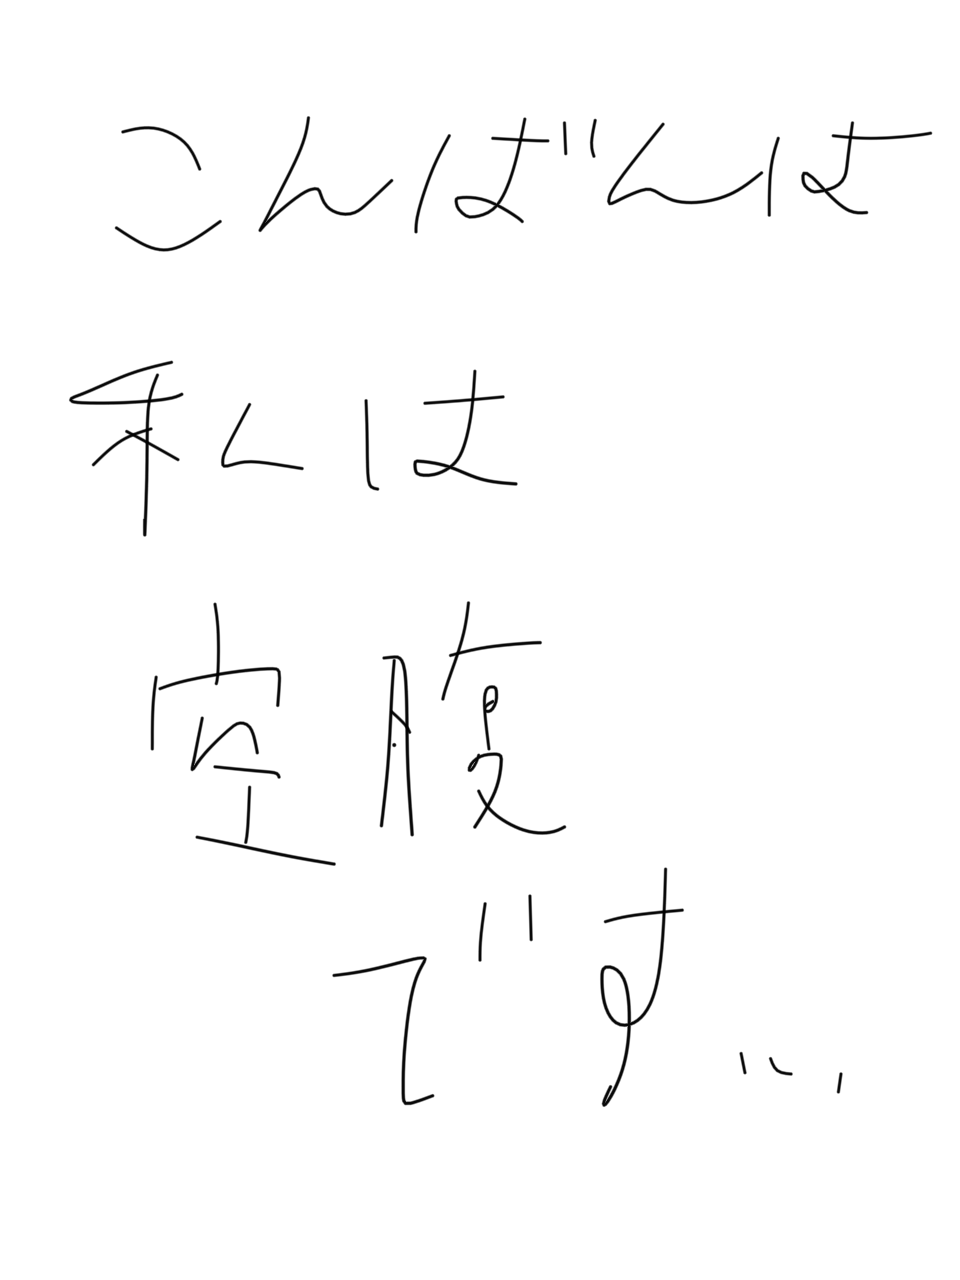 こんばんは
私は
空腹
です...